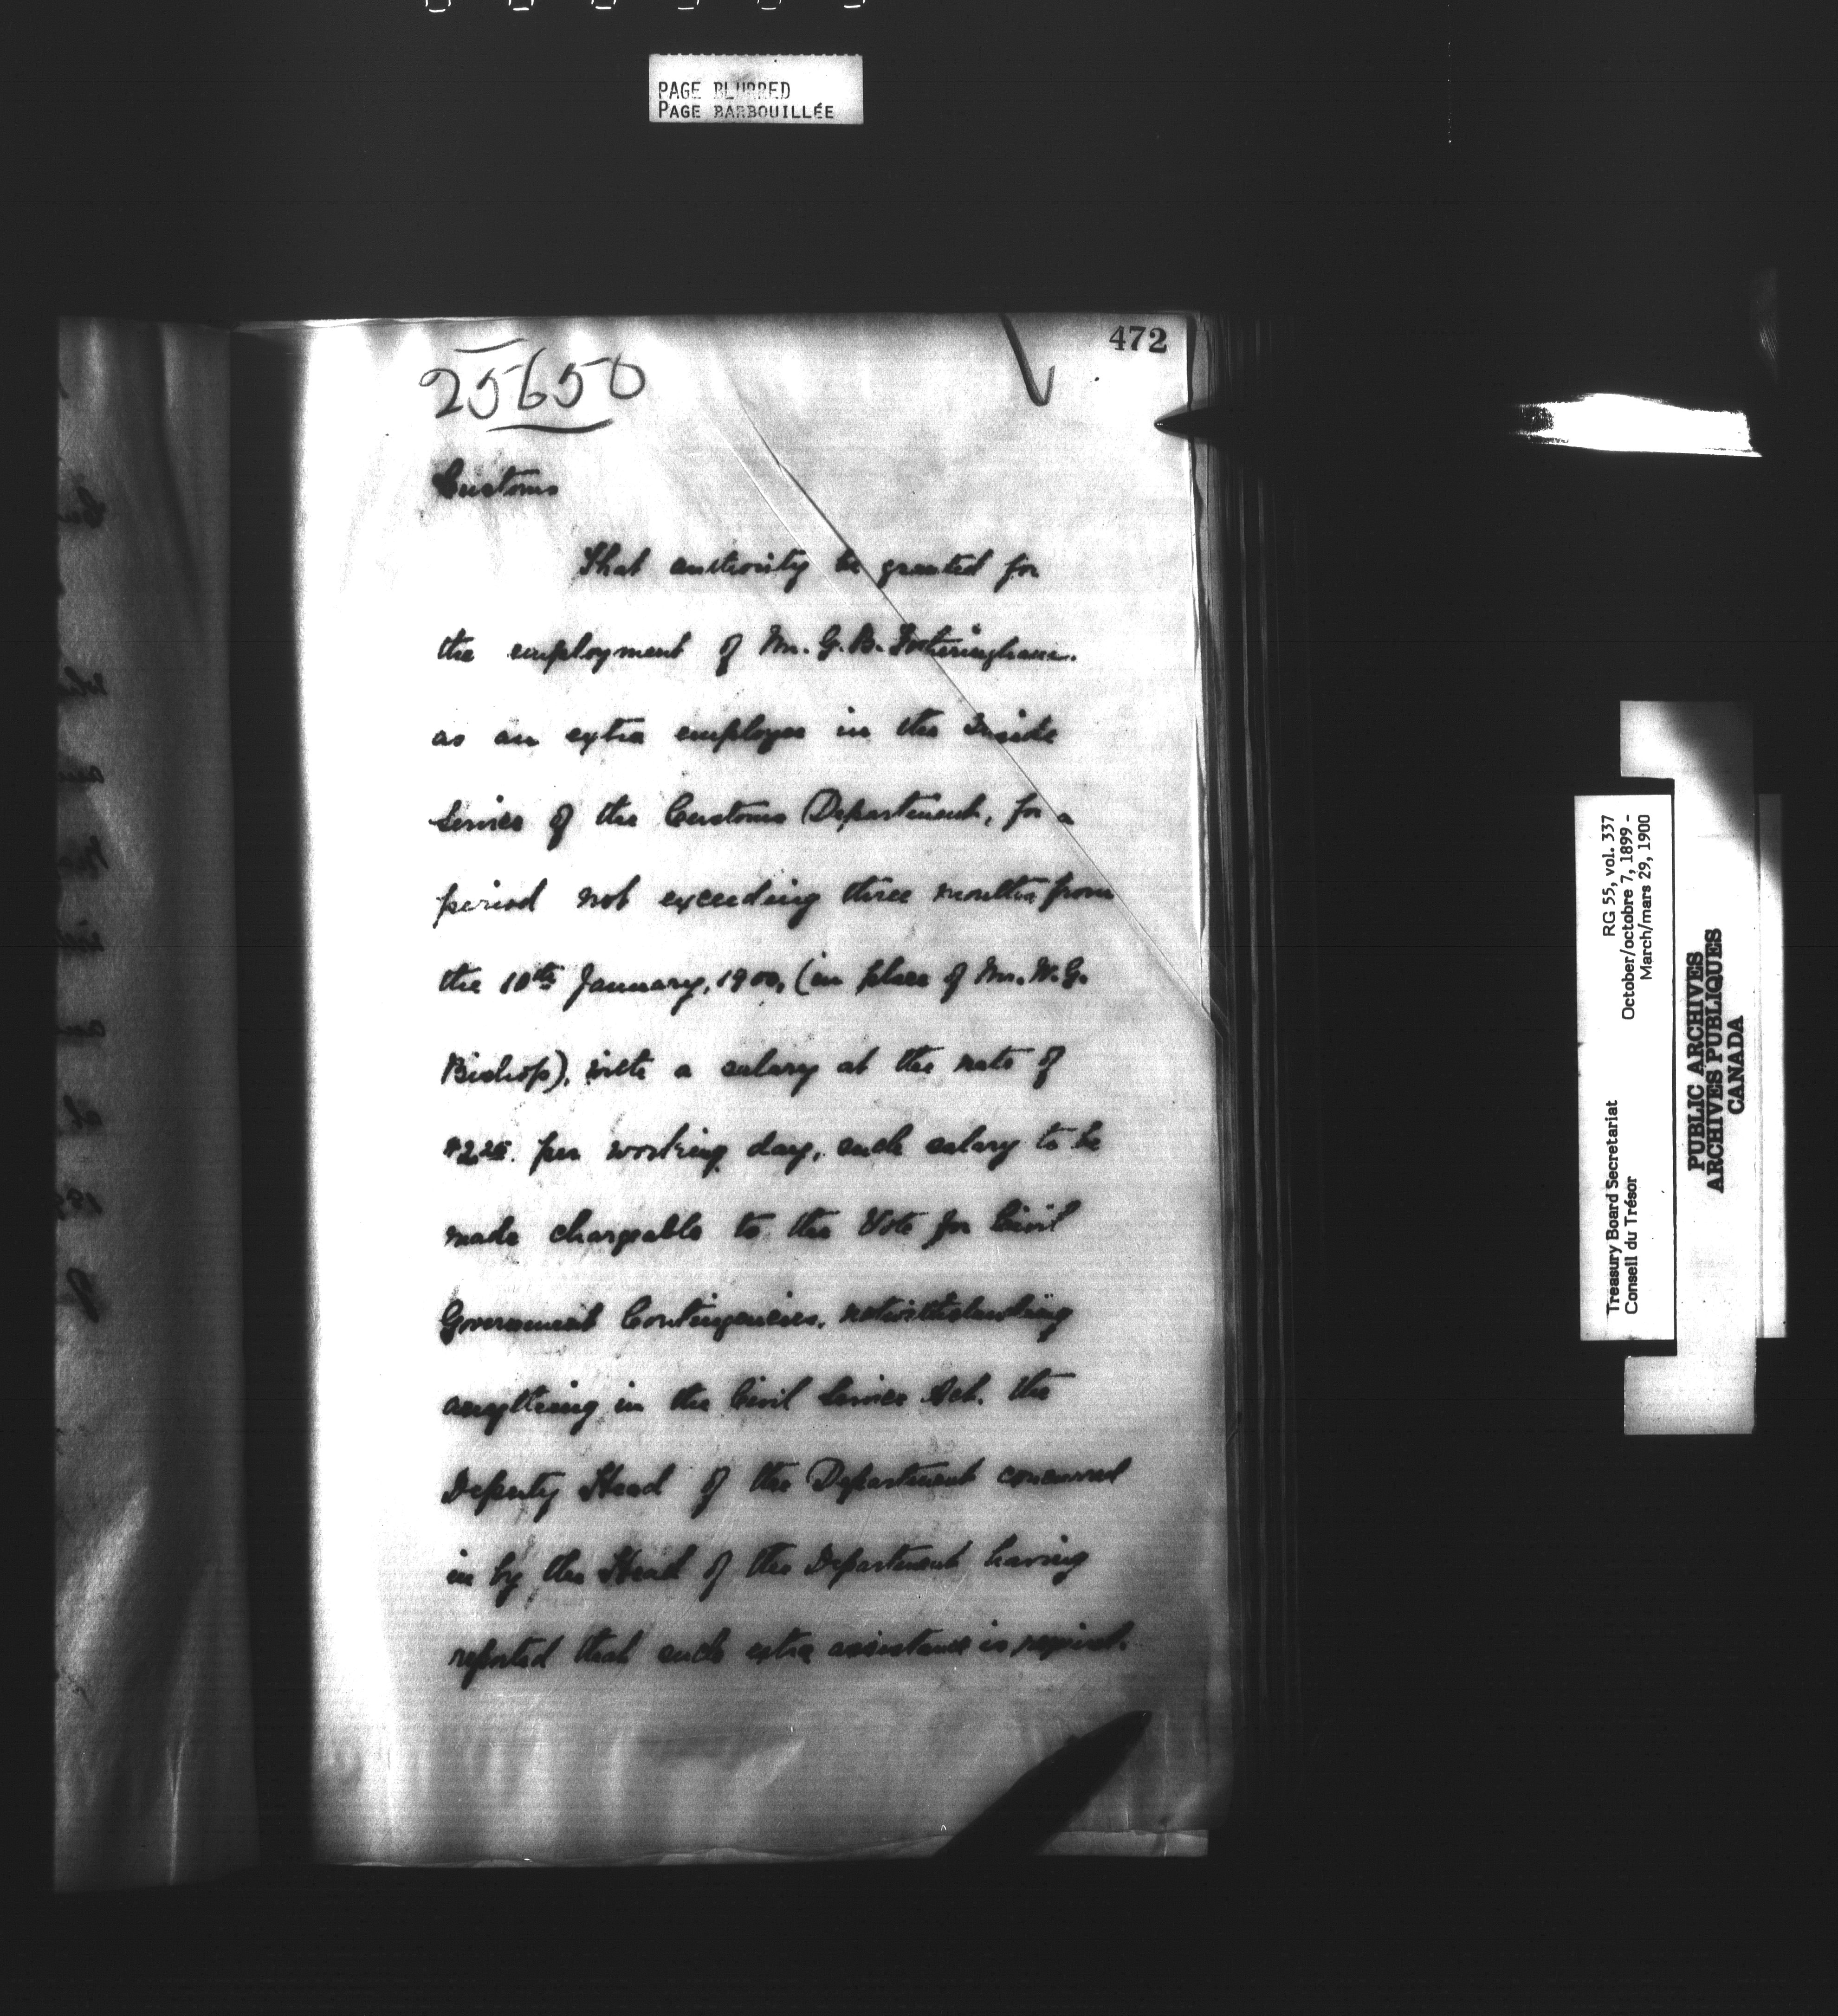 PAGE BLURRED
PAGE BARBOUILLÉE
472
25650
Customs
That authority be granted for
the employment of Mr. G. B. Fotheringham.
as an extra employee in the Inside
Service of the Customs Department, for a
period not exceeding three months from
the 10th January, 1900, (in place of Mr. W. G.
Bishop), with a salary at the rate of
per working day, such salary to be
made chargeable to the Vote for Civil
Government Contingencies, notwithstanding
anything in the Civil Service Act. the
Deputy Head of the Department concurred
in by the Head of the Department having
reported that such extra assistance is required.
Treasury Board Secretariat RG 55, vol. 337
Conseil du Trésor October/octobre 7, 1899 -
March/mars 29, 1900
PUBLIC ARCHIVES
ARCHIVES PUBLIQUES
CANADA